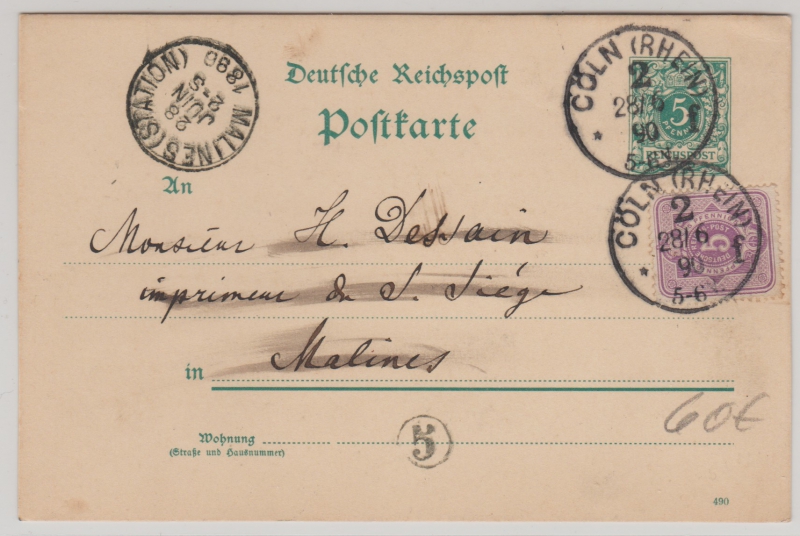 Deutsche Reichspost
Postkarte
An
Monsieur H. Dessain
imprimeur du S. Siége
in Malines
Wohnung
(Straße und Hausnummer)
5
60€
490
MALINES (STATION)
28
JUIN
1890
CÖLN (RHEIN)
2
28/6
90
f
5-6
*
5
PFENNIG
REICHSPOST
CÖLN (RHEIN)
2
28/6
90
f
5-6
*
5
PFENNIG